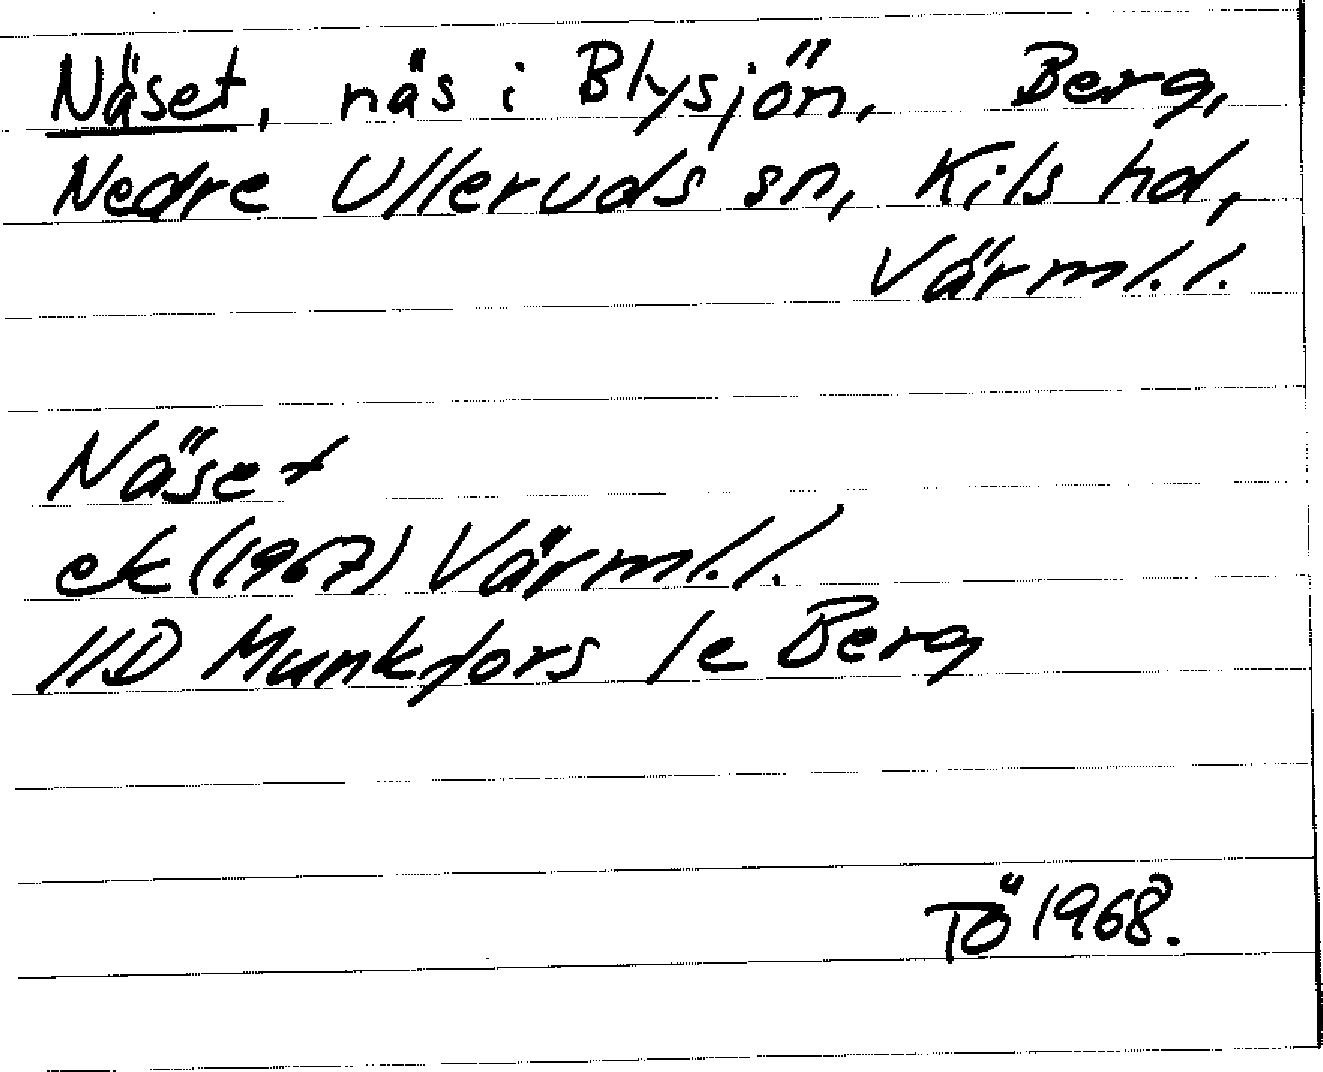 Näset, näs i Blysjön, Berg,
Nedre Ulleruds sn, Kils hd,
Värml. l.
Näset
ek (1967) Värml. l.
11D Munkfors 1e Berg
TÖ 1968.